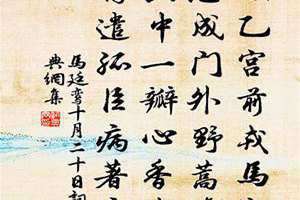 乙宫前戎馬
成门外野蒿
中一瓣心香
遣孤臣病著
馬廷鸾十月二十日詞
典網集